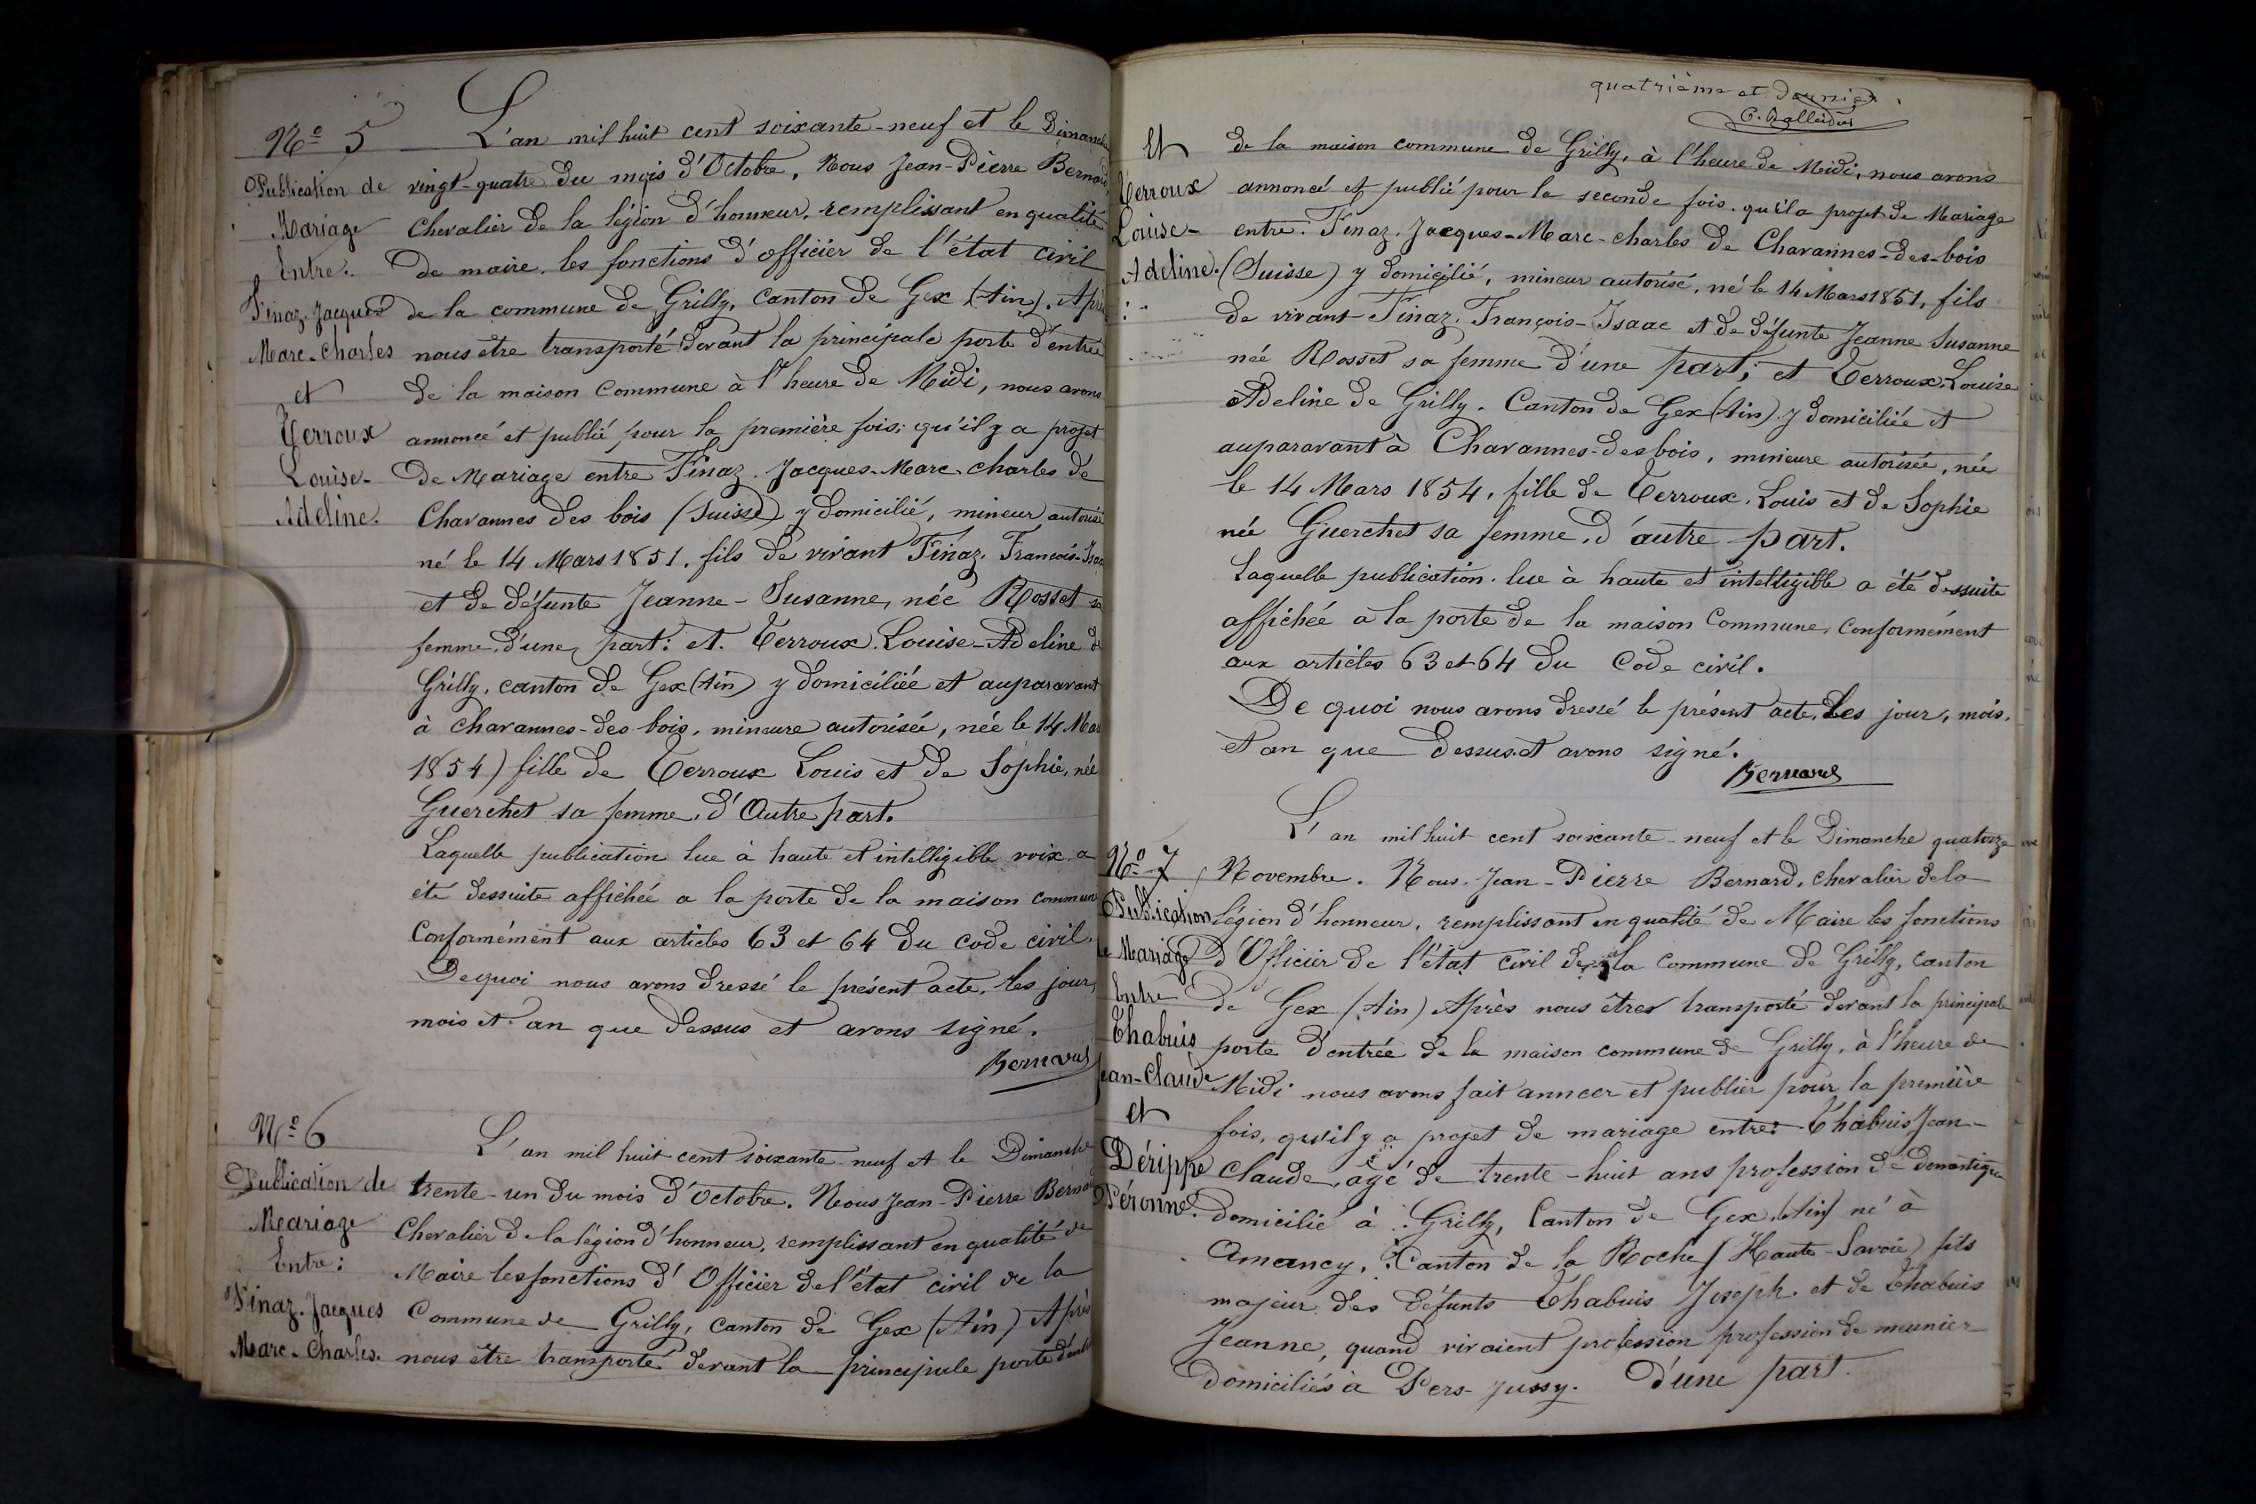 Nº 5
Publication de
Mariage
Entre.
Finaz. Jacques
Marc-Charles
et
Terroux
Louise-
Adeline.
L'an mil huit cent soixante-neuf et le Dimanche
vingt-quatre du mois d'Octobre, Nous Jean-Pierre Bernard
Chevalier de la légion d'honneur, remplissant en qualité
de maire. les fonctions d'officier de l'état civil
de la commune de Grilly, Canton de Gex (Ain). Après
nous être transporté devant la principale porte d'entrée
de la maison Commune à l'heure de Midi, nous avons
annoncé et publié pour la première fois; qu'il y a projet
de Mariage entre Finaz. Jacques-Marc-Charles de
Chavannes des bois (Suisse) y domicilié, mineur autorisé
né le 14 Mars 1851, fils de vivant Finaz. François-Isaac
et de défunte Jeanne-Susanne, née Rosset sa
femme, d'une part: et. Terroux. Louise-Adeline de
Grilly, canton de Gex (Ain) y domiciliée et auparavant
à Chavannes-des bois, mineure autorisée, née le 14 Mars
1854) fille de Terroux Louis et de Sophie, née
Guerchet sa femme, d'Autre part.
Laquelle publication lue à haute et intelligible voix a
été dessuite affichée a la porte de la maison commune
Conformément aux articles 63 et 64 du code civil.
De quoi nous avons dressé le présent acte, les jour,
mois et an que dessus et avons signé.
Bernard
Nº 6
Publication de
Mariage
Entre:
Finaz. Jacques
Marc-Charles.
L'an mil huit cent soixante neuf et le Dimanche
trente-un du mois d'Octobre. Nous Jean-Pierre Bernard
Chevalier de la légion d'honneur, remplissant en qualité de
Maire les fonctions d'Officier de l'état civil de la
Commune de Grilly, canton de Gex (Ain) Après
nous être transporté devant la principale porte d'entrée
quatrième et dernier.
Et
Terroux
Louise-
Adeline.
de la maison commune de Grilly, à l'heure de Midi, nous avons
annoncé et publié pour la seconde fois. qu'il a projet de Mariage
entre. Finaz. Jacques-Marc-charles de Chavannes-des-bois
(Suisse) y domicilié, mineur autorisé, né le 14 Mars 1851, fils
de vivant Finaz. François-Isaac et de défunte Jeanne Susanne
née Rosset sa femme d'une part; et Terroux. Louise
Adeline de Grilly. Canton de Gex (Ain) y domiciliée et
auparavant à Chavannes-des bois, mineure autorisée, née
le 14 Mars 1854, fille de Terroux. Louis et de Sophie
née Guerchet sa femme, d'autre part.
Laquelle publication. lue à haute et intelligible a été dessuite
affichée a la porte de la maison Commune, Conformément
aux articles 63 et 64 du Code civil.
De quoi nous avons dressé le présent acte, Les jour, mois,
et an que dessus et avons signé.
Bernard
Nº 7
Publication
de Mariage
Entre
Thabuis
Jean-Claude
et
Dérippe
Péronne.
L'an mil huit cent soixante-neuf et le Dimanche quatorze
Novembre. Nous. Jean-Pierre Bernard, chevalier de la
légion d'honneur, remplissant en qualité de Maire les fonctions
d'Officier de l'état civil de la commune de Grilly, canton
de Gex (Ain) Après nous être transporté devant la principale
porte d'entrée de la maison commune de Grilly, à l'heure de
Midi nous avons fait anncer et publier pour la première
fois, qu'il y a projet de mariage entre: Thabuis Jean-
Claude, agé de trente-huit ans profession de domestique
domicilié à Grilly, Canton de Gex (Ain) né à
Amancy, Canton de la Roche (Haute-Savoie) fils
majeur des défunts Thabuis Joseph. et de Thabuis
Jeanne, quand vivaient profession profession de meunier
domiciliés à Pers-Jussy. D'une part.